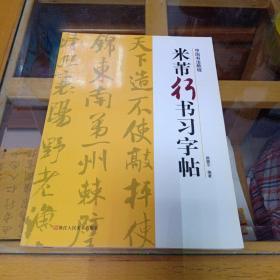 中国书法教程
米芾行书习字帖
天下造不使敲抨使
锦東南第一州棘壁
襄陽野老
浙江人民美术出版社